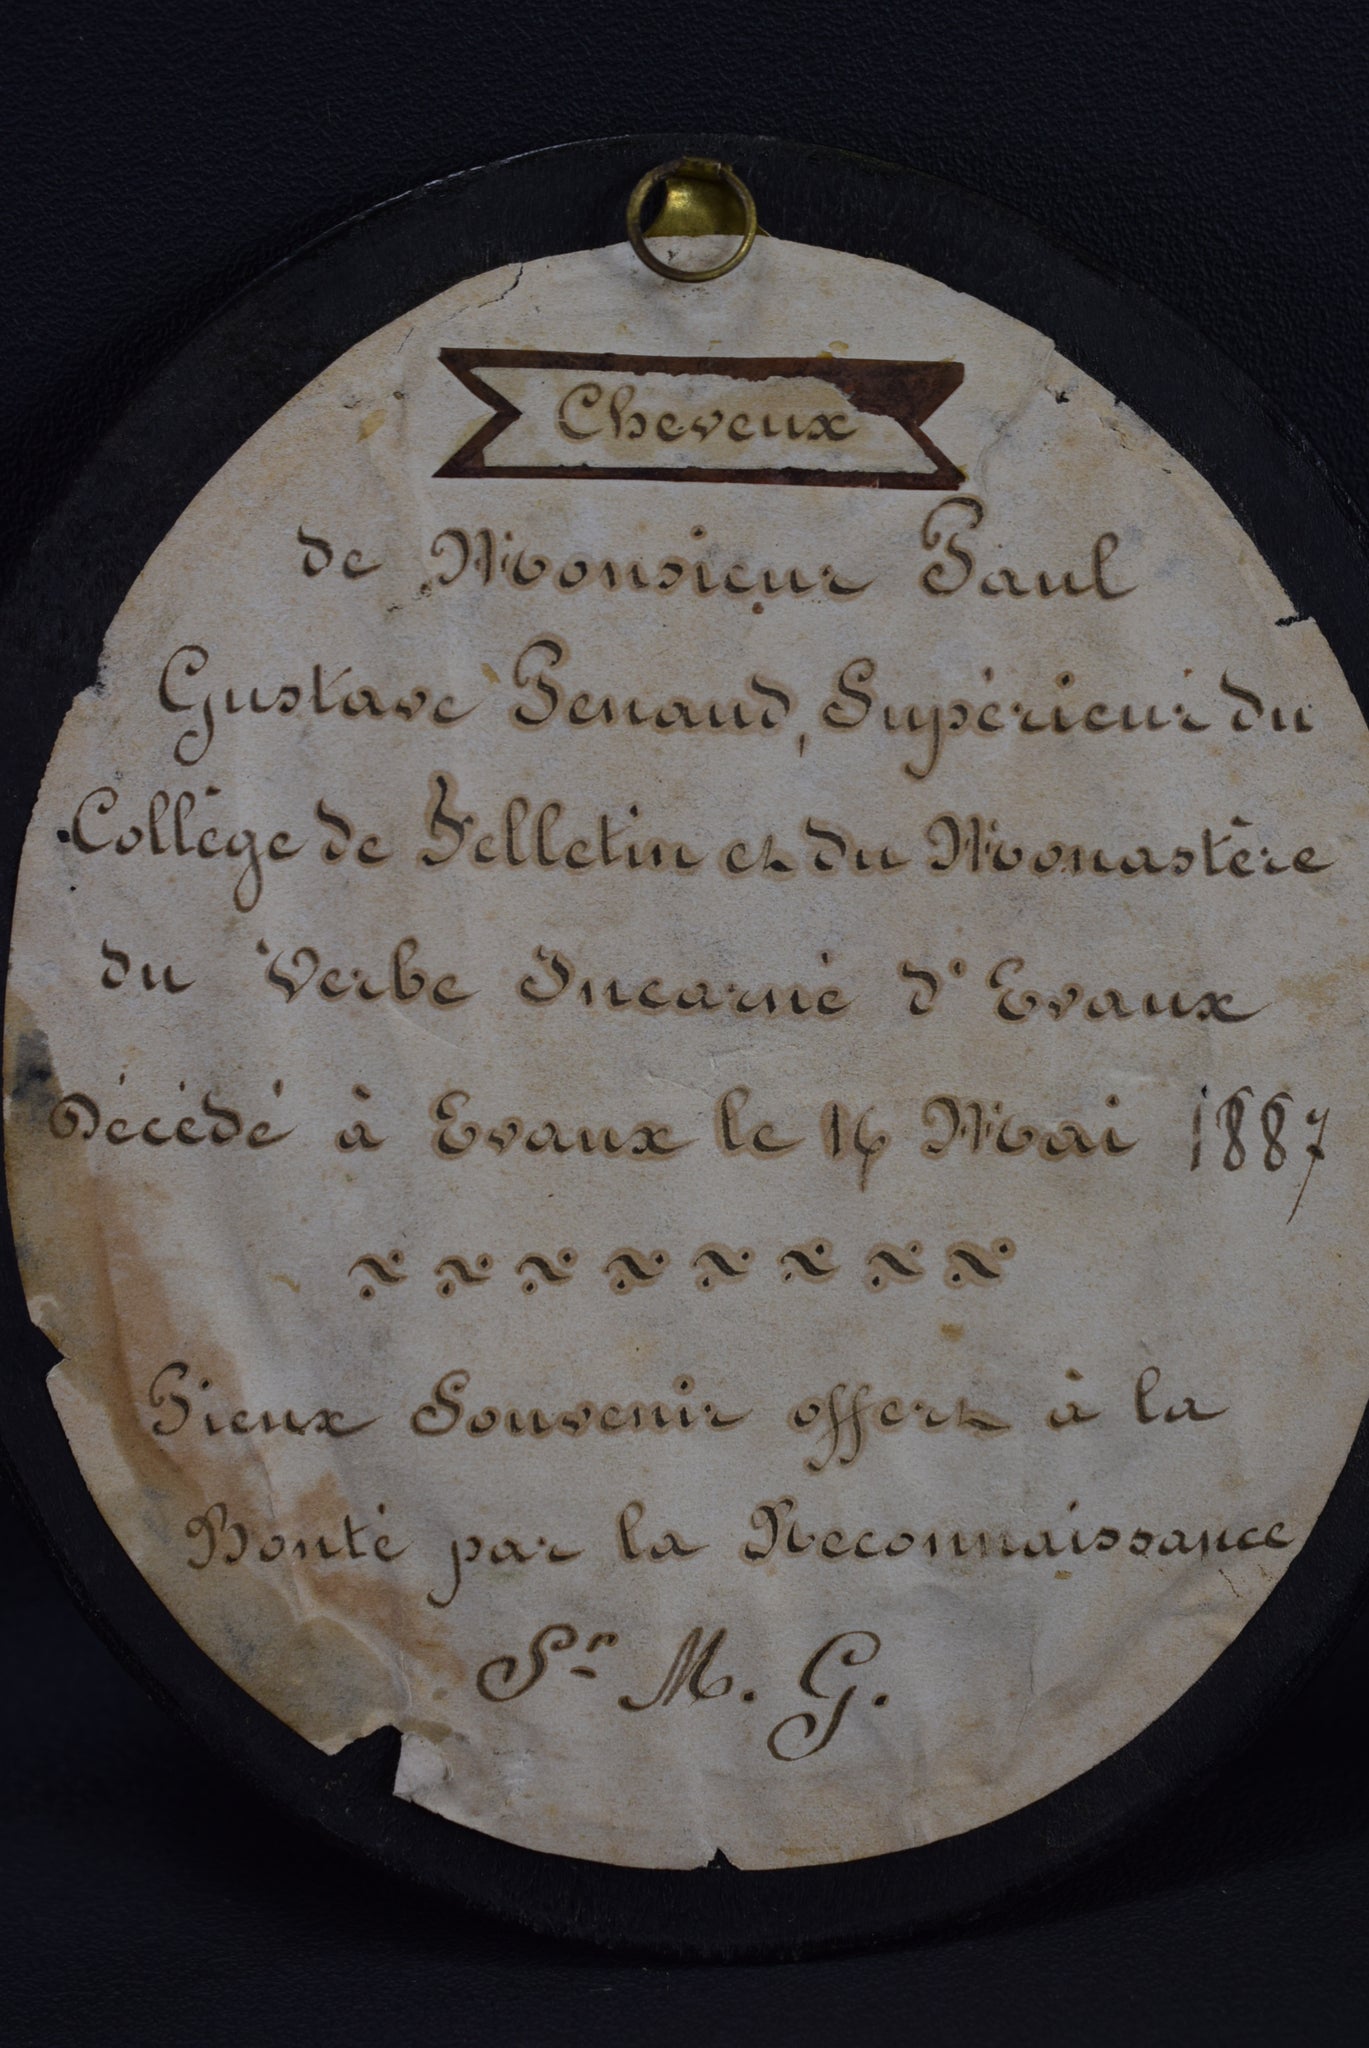 Cheveux
de Monsieur Paul
Gustave Penaud, Supérieur du
Collège de Felletin et du Monastère
du Verbe Incarné d'Evaux
Décédé à Evaux le 16 Mai 1887
Pieux Souvenir offert à la
Bonté par la Reconnaissance
Sr M. G.